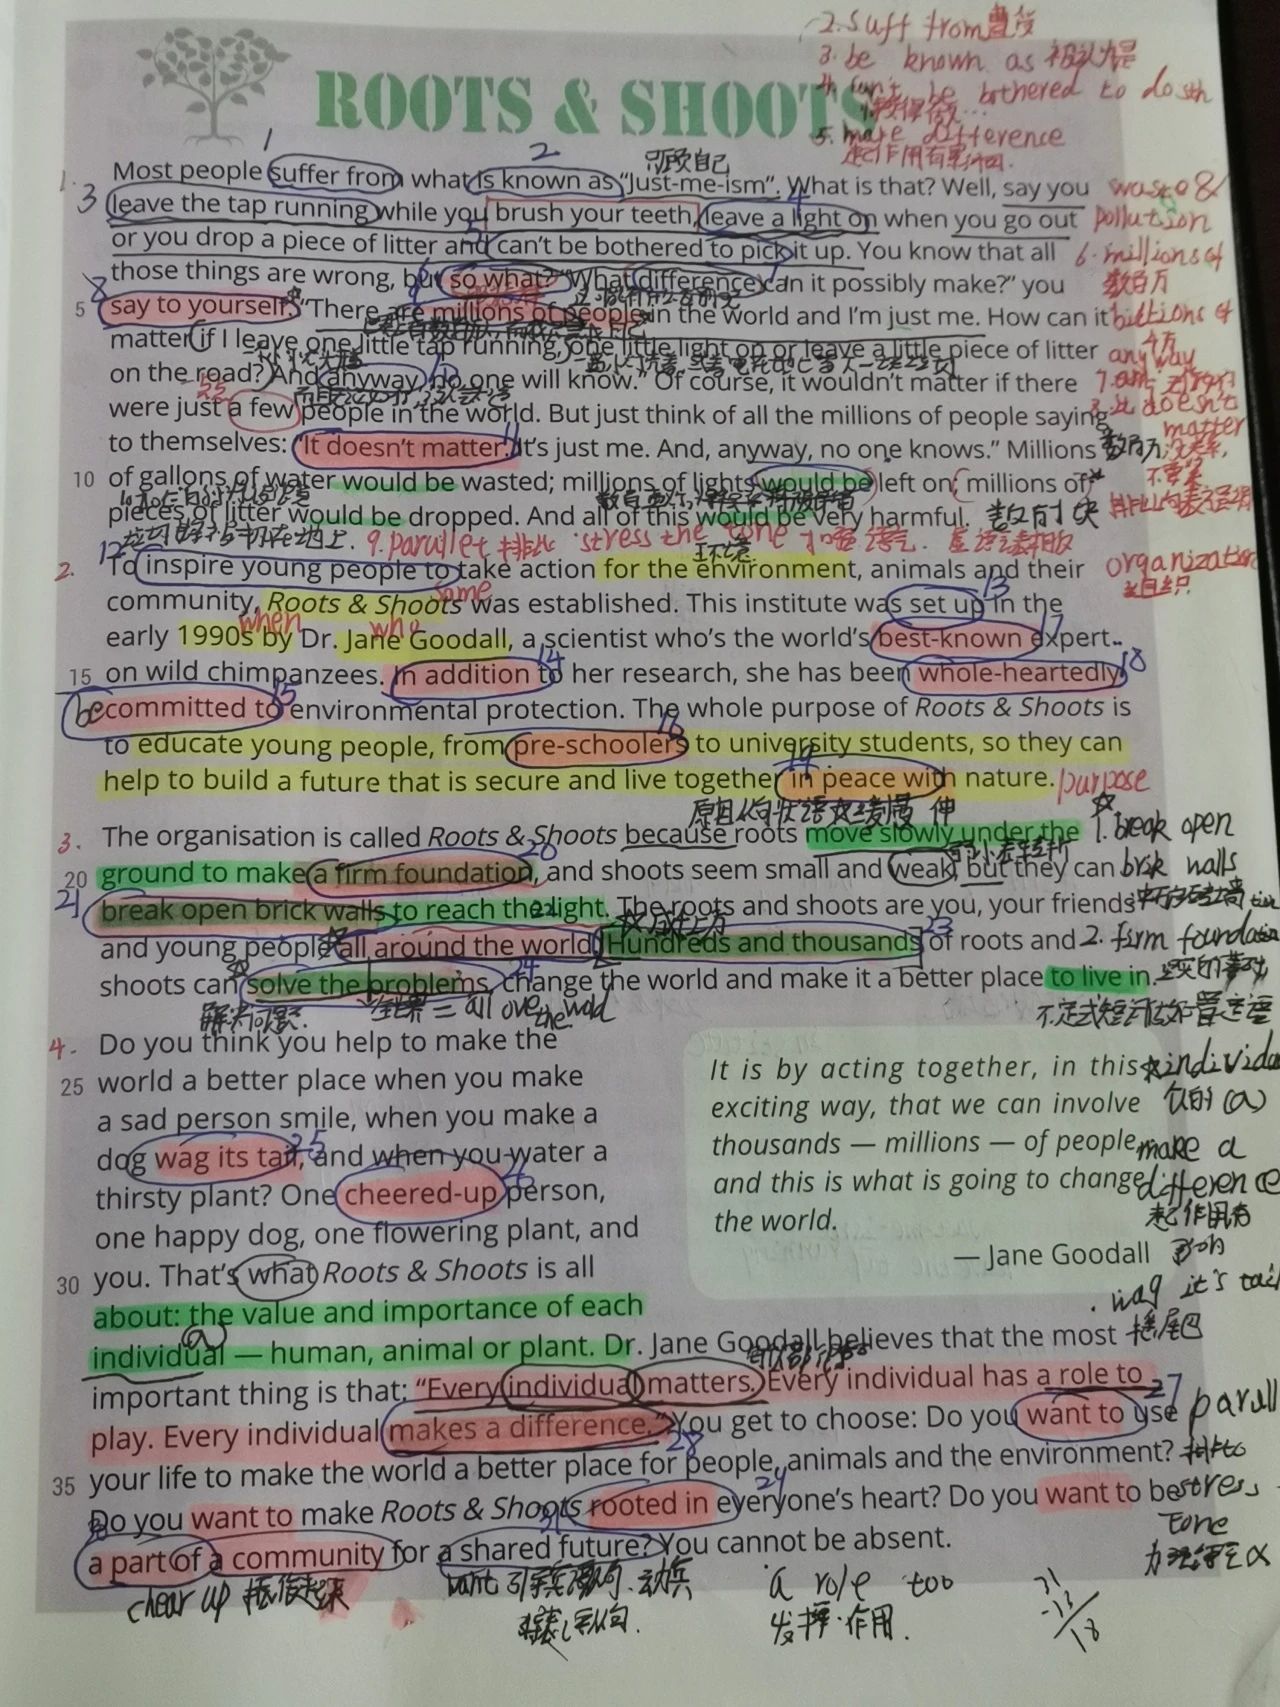 2. suff from 遭受
3. be known as 被认为是
ROOTS & SHOOTS
4. can't be bothered to do sth
5. make difference
起作用有影响.
只顾自己
1. Most people suffer from what is known as “Just-me-ism”. What is that? Well, say you
leave the tap running while you brush your teeth, leave a light on when you go out
or you drop a piece of litter and can't be bothered to pick it up. You know that all
those things are wrong, but so what? “What difference can it possibly make?” you
5 say to yourself. “There are millions of people in the world and I'm just me. How can it
matter if I leave one little tap running, one little light on or leave a little piece of litter
on the road? And anyway, no one will know.” Of course, it wouldn't matter if there
were just a few people in the world. But just think of all the millions of people saying
to themselves: “It doesn't matter. It's just me. And, anyway, no one knows.” Millions
10 of gallons of water would be wasted; millions of lights would be left on; millions of
pieces of litter would be dropped. And all of this would be very harmful.
waste &
pollution
6. millions of
数百万
billions of
anyway
it doesn't
matter
没关系,
不要紧
9. parallel 排比 stress the tone
2. To inspire young people to take action for the environment, animals and their
community, Roots & Shoots was established. This institute was set up in the
early 1990s by Dr. Jane Goodall, a scientist who's the world's best-known expert
15 on wild chimpanzees. In addition to her research, she has been whole-heartedly
be committed to environmental protection. The whole purpose of Roots & Shoots is
to educate young people, from pre-schoolers to university students, so they can
help to build a future that is secure and live together in peace with nature. purpose
环境
organization
组织
some
when
who
3. The organisation is called Roots & Shoots because roots move slowly under the
20 ground to make a firm foundation, and shoots seem small and weak, but they can
break open brick walls to reach the light. The roots and shoots are you, your friends
and young people all around the world. Hundreds and thousands of roots and
shoots can solve the problems, change the world and make it a better place to live in.
1. break open
brick walls
2. firm foundation
坚实的基础
解决问题.
全世界 = all over the world
不定式短语作后置定语
4. Do you think you help to make the
25 world a better place when you make
a sad person smile, when you make a
dog wag its tail, and when you water a
thirsty plant? One cheered-up person,
one happy dog, one flowering plant, and
30 you. That's what Roots & Shoots is all
about: the value and importance of each
individual — human, animal or plant. Dr. Jane Goodall believes that the most
important thing is that: “Every individual matters. Every individual has a role to
play. Every individual makes a difference.” You get to choose: Do you want to use
35 your life to make the world a better place for people, animals and the environment?
Do you want to make Roots & Shoots rooted in everyone's heart? Do you want to be
a part of a community for a shared future? You cannot be absent.
It is by acting together, in this
exciting way, that we can involve
thousands — millions — of people,
and this is what is going to change
the world.
— Jane Goodall
individual
make a
difference
起作用有
影响
wag it's tail
摇尾巴
stress
tone
chear up 振作起来
a role too
发挥作用.
31
-13
18